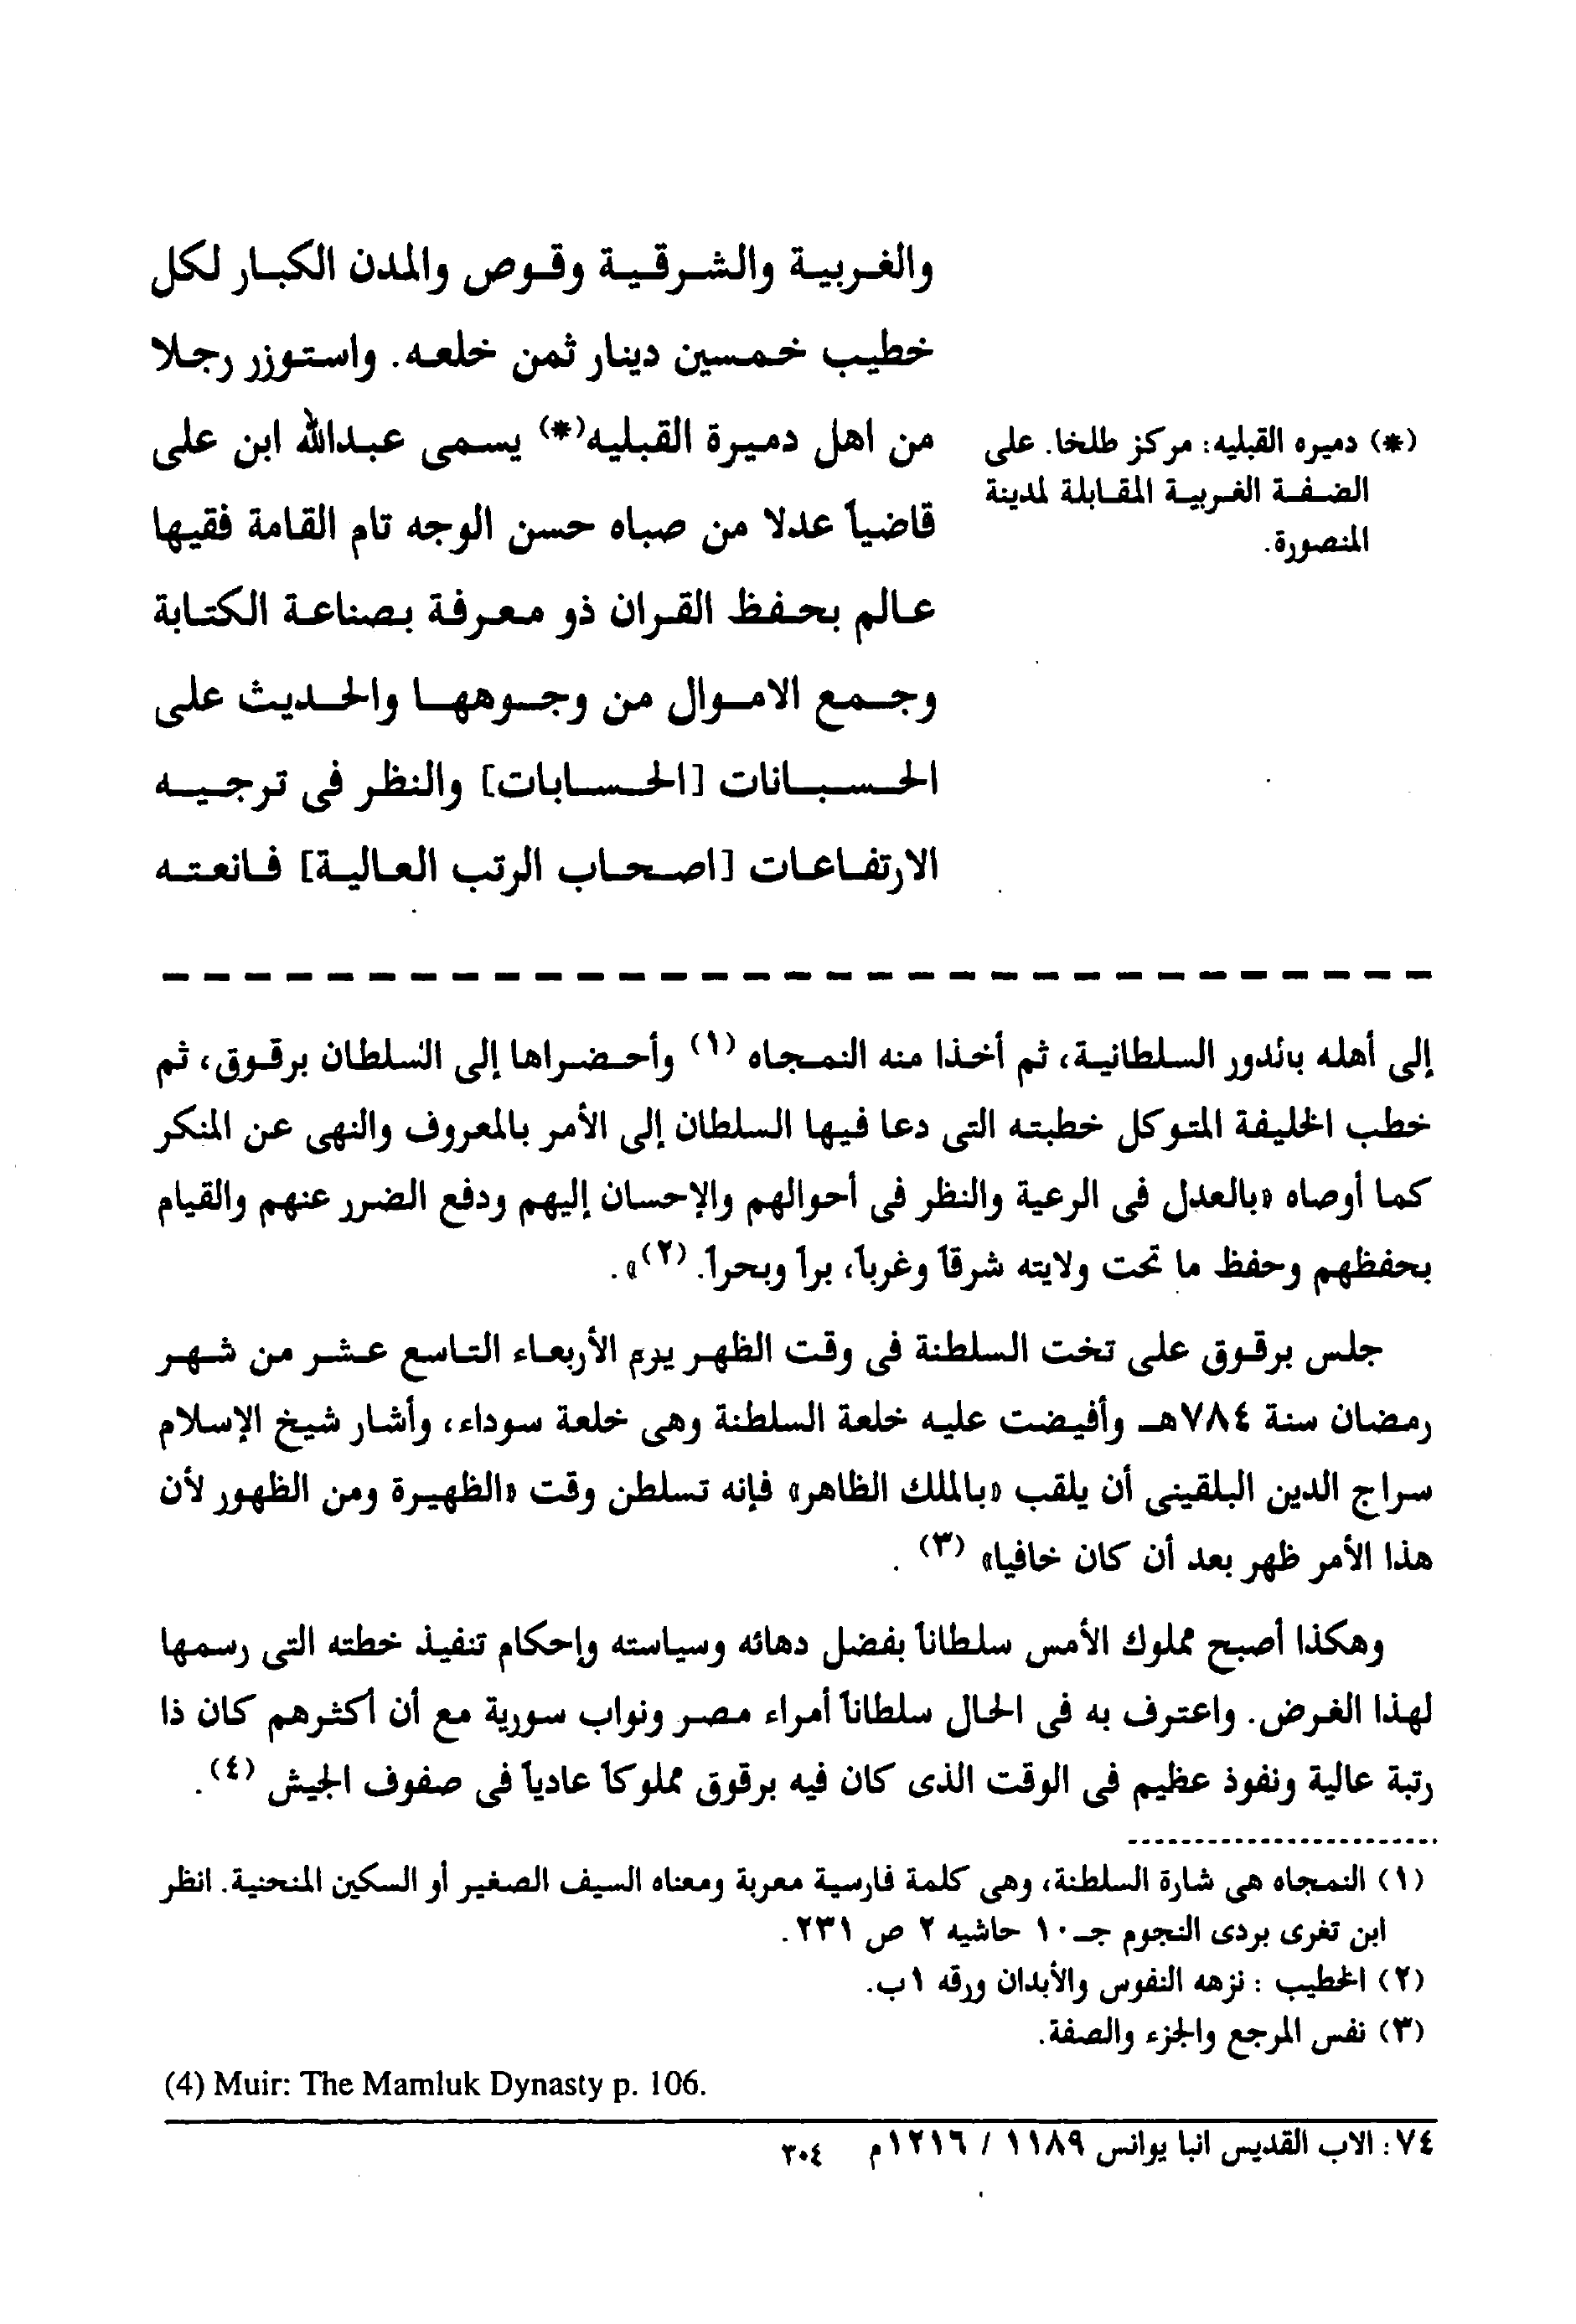 والغربية والشرقية وقوص والمدن الكبار لكل
خطيب خمسين دينار ثمن خلعه. واستوزر رجلا
من اهل دميرة القبليه(*) يسمى عبدالله ابن على
قاضياً عدلا من صباه حسن الوجه تام القامة فقيها
عالم بحفظ القران ذو معرفة بصناعة الكتابة
وجمع الاموال من وجوهها والحديث على
الحسبانات [الحسابات] والنظر فى ترجيه
الارتفاعات [اصحاب الرتب العالية] فانعته
(*) دميره القبليه: مركز طلخا. على
الضفة الغربية المقابلة لمدينة
المنصورة.
إلى أهله بالدور السلطانية، ثم أخذا منه النمجاه (١) وأحضراها إلى السلطان برقوق، ثم
خطب الخليفة المتوكل خطبته التى دعا فيها السلطان إلى الأمر بالمعروف والنهى عن المنكر
كما أوصاه «بالعدل فى الرعية والنظر فى أحوالهم والإحسان إليهم ودفع الضرر عنهم والقيام
بحفظهم وحفظ ما تحت ولايته شرقاً وغرباً، براً وبحراً. (٢)».
جلس برقوق على تخت السلطنة فى وقت الظهر يوم الأربعاء التاسع عشر من شهر
رمضان سنة ٧٨٤هـ وأفيضت عليه خلعة السلطنة وهى خلعة سوداء، وأشار شيخ الإسلام
سراج الدين البلقينى أن يلقب «بالملك الظاهر» فإنه تسلطن وقت «الظهيرة ومن الظهور لأن
هذا الأمر ظهر بعد أن كان خافيا» (٣) .
وهكذا أصبح مملوك الأمس سلطاناً بفضل دهائه وسياسته وإحكام تنفيذ خطته التى رسمها
لهذا الغرض. واعترف به فى الحال سلطاناً أمراء مصر ونواب سورية مع أن أكثرهم كان ذا
رتبة عالية ونفوذ عظيم فى الوقت الذى كان فيه برقوق مملوكاً عادياً فى صفوف الجيش (٤).
(١) النمجاه هى شارة السلطنة، وهى كلمة فارسية معربة ومعناه السيف الصغير أو السكين المنحنية. انظر
ابن تغرى بردى النجوم جـ١٠ حاشيه ٢ ص ٢٣١.
(٢) الخطيب : نزهه النفوس والأبدان ورقه ١ب.
(٣) نفس المرجع والجزء والصفة.
(4) Muir: The Mamluk Dynasty p. 106.
٧٤: الاب القديس انبا يوانس ١١٨٩ / ١٢١٦م ٣٠٤